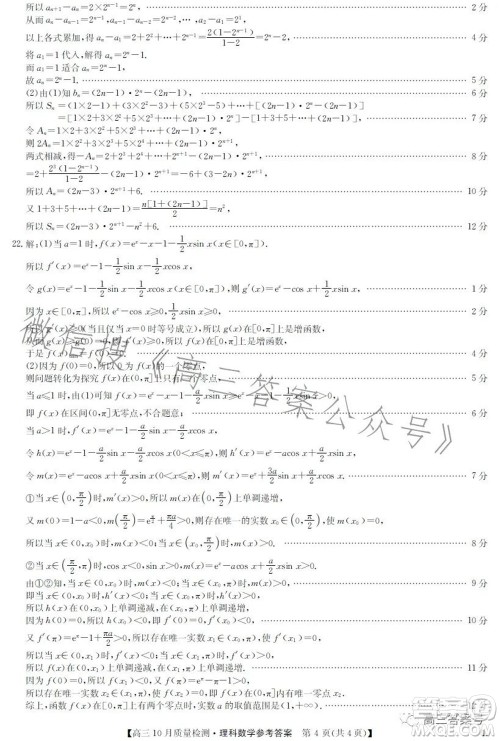 所以aₙ₊₁-aₙ=2×2ⁿ⁻¹=2ⁿ. 2分
从而aₙ-aₙ₋₁=2ⁿ⁻¹,…,a₂-a₁=2¹.
以上各式累加,得aₙ-a₁=2+2²+…+2ⁿ⁻¹=2(1-2ⁿ⁻¹)/(1-2)=2ⁿ-2. 4分
将a₁=1代人,解得aₙ=2ⁿ-1.
而a₁=1适合aₙ=2ⁿ-1.
故aₙ=2ⁿ-1. 5分
(2)由(1)知bₙ=(2n-1)·2ⁿ-(2n-1).
所以Sₙ=(1×2-1)+(3×2²-3)+(5×2³-5)+…+[(2n-1)·2ⁿ-(2n-1)]
=[1×2+3×2²+5×2³+…+(2n-1)·2ⁿ]-[1+3+5+…+(2n-1)]. 7分
令Aₙ=1×2+3×2²+5×2³+…+(2n-1)·2ⁿ,
则2Aₙ=1×2²+3×2³+5×2⁴+…+(2n-1)·2ⁿ⁺¹,
两式相减,得-Aₙ=2+2×2²+2×2³+…+2×2ⁿ-(2n-1)·2ⁿ⁺¹
=2+2³(1-2ⁿ⁻¹)/(1-2)-(2n-1)·2ⁿ⁺¹=-6+(3-2n)·2ⁿ⁺¹,
所以Aₙ=(2n-3)·2ⁿ⁺¹+6. 10分
又1+3+5+…+(2n-1)=n[1+(2n-1)]/2=n²,
所以Sₙ=(2n-3)·2ⁿ⁺¹-n²+6. 12分
22.解:(1)当a=1时,f(x)=eˣ-x-1-1/2xsin x(x∈[0,π]).
所以f′(x)=eˣ-1-1/2sin x-1/2xcos x,
令g(x)=eˣ-1-1/2sin x-1/2xcos x(x∈[0,π]),则g′(x)=eˣ-cos x+1/2xsin x. 1分
因为x∈[0,π],所以eˣ-cos x≥0,1/2xsin x≥0. 2分
g′(x)≥0(当且仅当x=0时等号成立),所以g(x)在[0,π]上是增函数,
g(x)≥g(0)=0,f′(x)≥0,所以f(x)在[0,π]上是增函数,
于是f(x) 4分
(2)因为f(0)=0,所以0为f(x)的一个零点,
则问题转化为探究f(x)在(0,π]上只有一个零点.
当a≤1时,由(1)知,f(x)=eˣ-x-1-
即f(x)在区间(0,π]无零点,不符合题意. 6分
当a>1时,f′(x)=eˣ-1-a/2sin x-a/2xcos x,
令h(x)=eˣ-1-a/2sin x-a/2xcos x(0<x≤π),则h′(x)=eˣ-acos x+a/2xsin x,
令m(x)=eˣ-acos x+a/2xsin x(0<x≤π),则m′(x)=eˣ+3a/2sin x+a/2xcos x. 7分
①当x∈(0,π/2)时,m′(x)>0,所以m(x)在(0,π/2)上单调递增,
又m(0)=1-a<0,m(π/2)=e^(π/2)+πa/4>0,则存在唯一的实数x₀∈(0,π/2),使得m(x₀)=0,
所以当x∈(0,x₀)时,m(x)<0;当x∈(x₀,π/2)时,m(x)>0. 8分
②当x∈(π/2,π)时,cos x<0,sin x>0,所以m(x)=eˣ-acos x+a/2xsin x>0,
由①②知,当x∈(0,x₀)时,m(x)<0;当x∈(x₀,π)时,m(x)>0, 9分
即当x∈(0,x₀)时,h′(x)<0;当x∈(x₀,π)时,h′(x)>0,
所以h(x)在(0,x₀)上单调递减,在(x₀,π)上单调递增.
因为h(0)=0,所以h(x₀)<0,即f′(x₀)<0, 10分
又f′(π)=eπ-1+πa/2>0,所以存在唯一的实数x₁∈(x₀,π),使得f′(x₁)=0,
所以当x∈(0,x₁)时,f′(x)<0;当x∈(x₁,π)时,f′(x)>0,
所以f(x)在(0,x₁)上单调递减,在(x₁,π)上单调递增. 11分
因为f(0)=0,所以f(x₁)<0.又f(π)=eπ-π-1>0,
所以存在唯一的实数x₂∈(x₁,π),使得f(x₂)=0,即f(x)在(0,π]上有唯一零点x₂.
综上,函数f(x)在[0,π]上有两个零点时,实数a的取值范围是(1,+∞).
【高三10月质量检测·理科数学参考答案 第4页(共4页)】
微信搜《高三答案公众号》
高三答案号